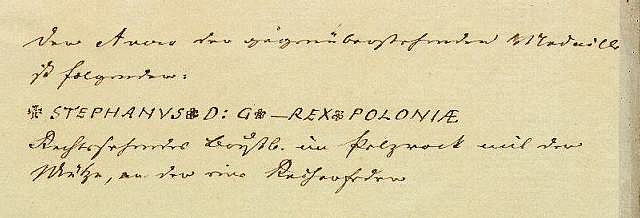 Der Avers der gegenüberstehenden Medaille
ist folgender:
✽ STEPHANVS ✽ D: G ✽ — REX ✽ POLONIÆ
Rechtssehendes Brustb. im Pelzrock mit der
Mütze, an der eine Reiherfeder